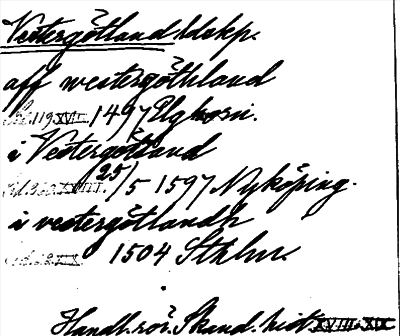 Vestergötland ldskp.
aff westergöthland
119 XVII. 1497 Elgkorsi.
i Vestergötland
25/5 1597 Nyköping.
i vestergötlandh
1504 Sthlm.
Handl. rör. Skand. hist. XVIII. XIX